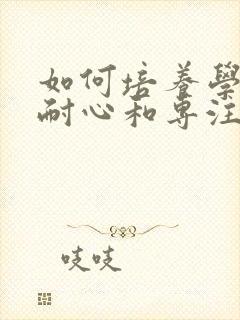 如何培养學
耐心和专注
吱吱